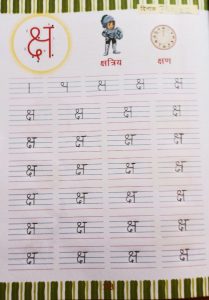 क्ष दिनांक
क्षत्रिय क्षण
क्ष क्ष क्ष
क्ष क्ष क्ष क्ष
क्ष क्ष क्ष क्ष
क्ष क्ष क्ष क्ष
क्ष क्ष क्ष क्ष
क्ष क्ष क्ष क्ष
क्ष क्ष क्ष क्ष